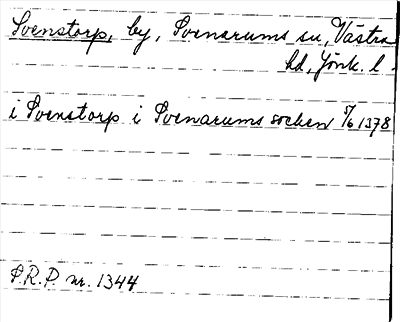 Svenstorp, by, Svenarums sn, Västra
hd, Jönk. l.
i Svenstorp i Svenarums socken 5/6 1378
P.R.P. nr. 1344